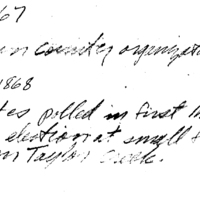 67
n county organiza
1868
tes polled in first
election at small
on Taylor Creek.